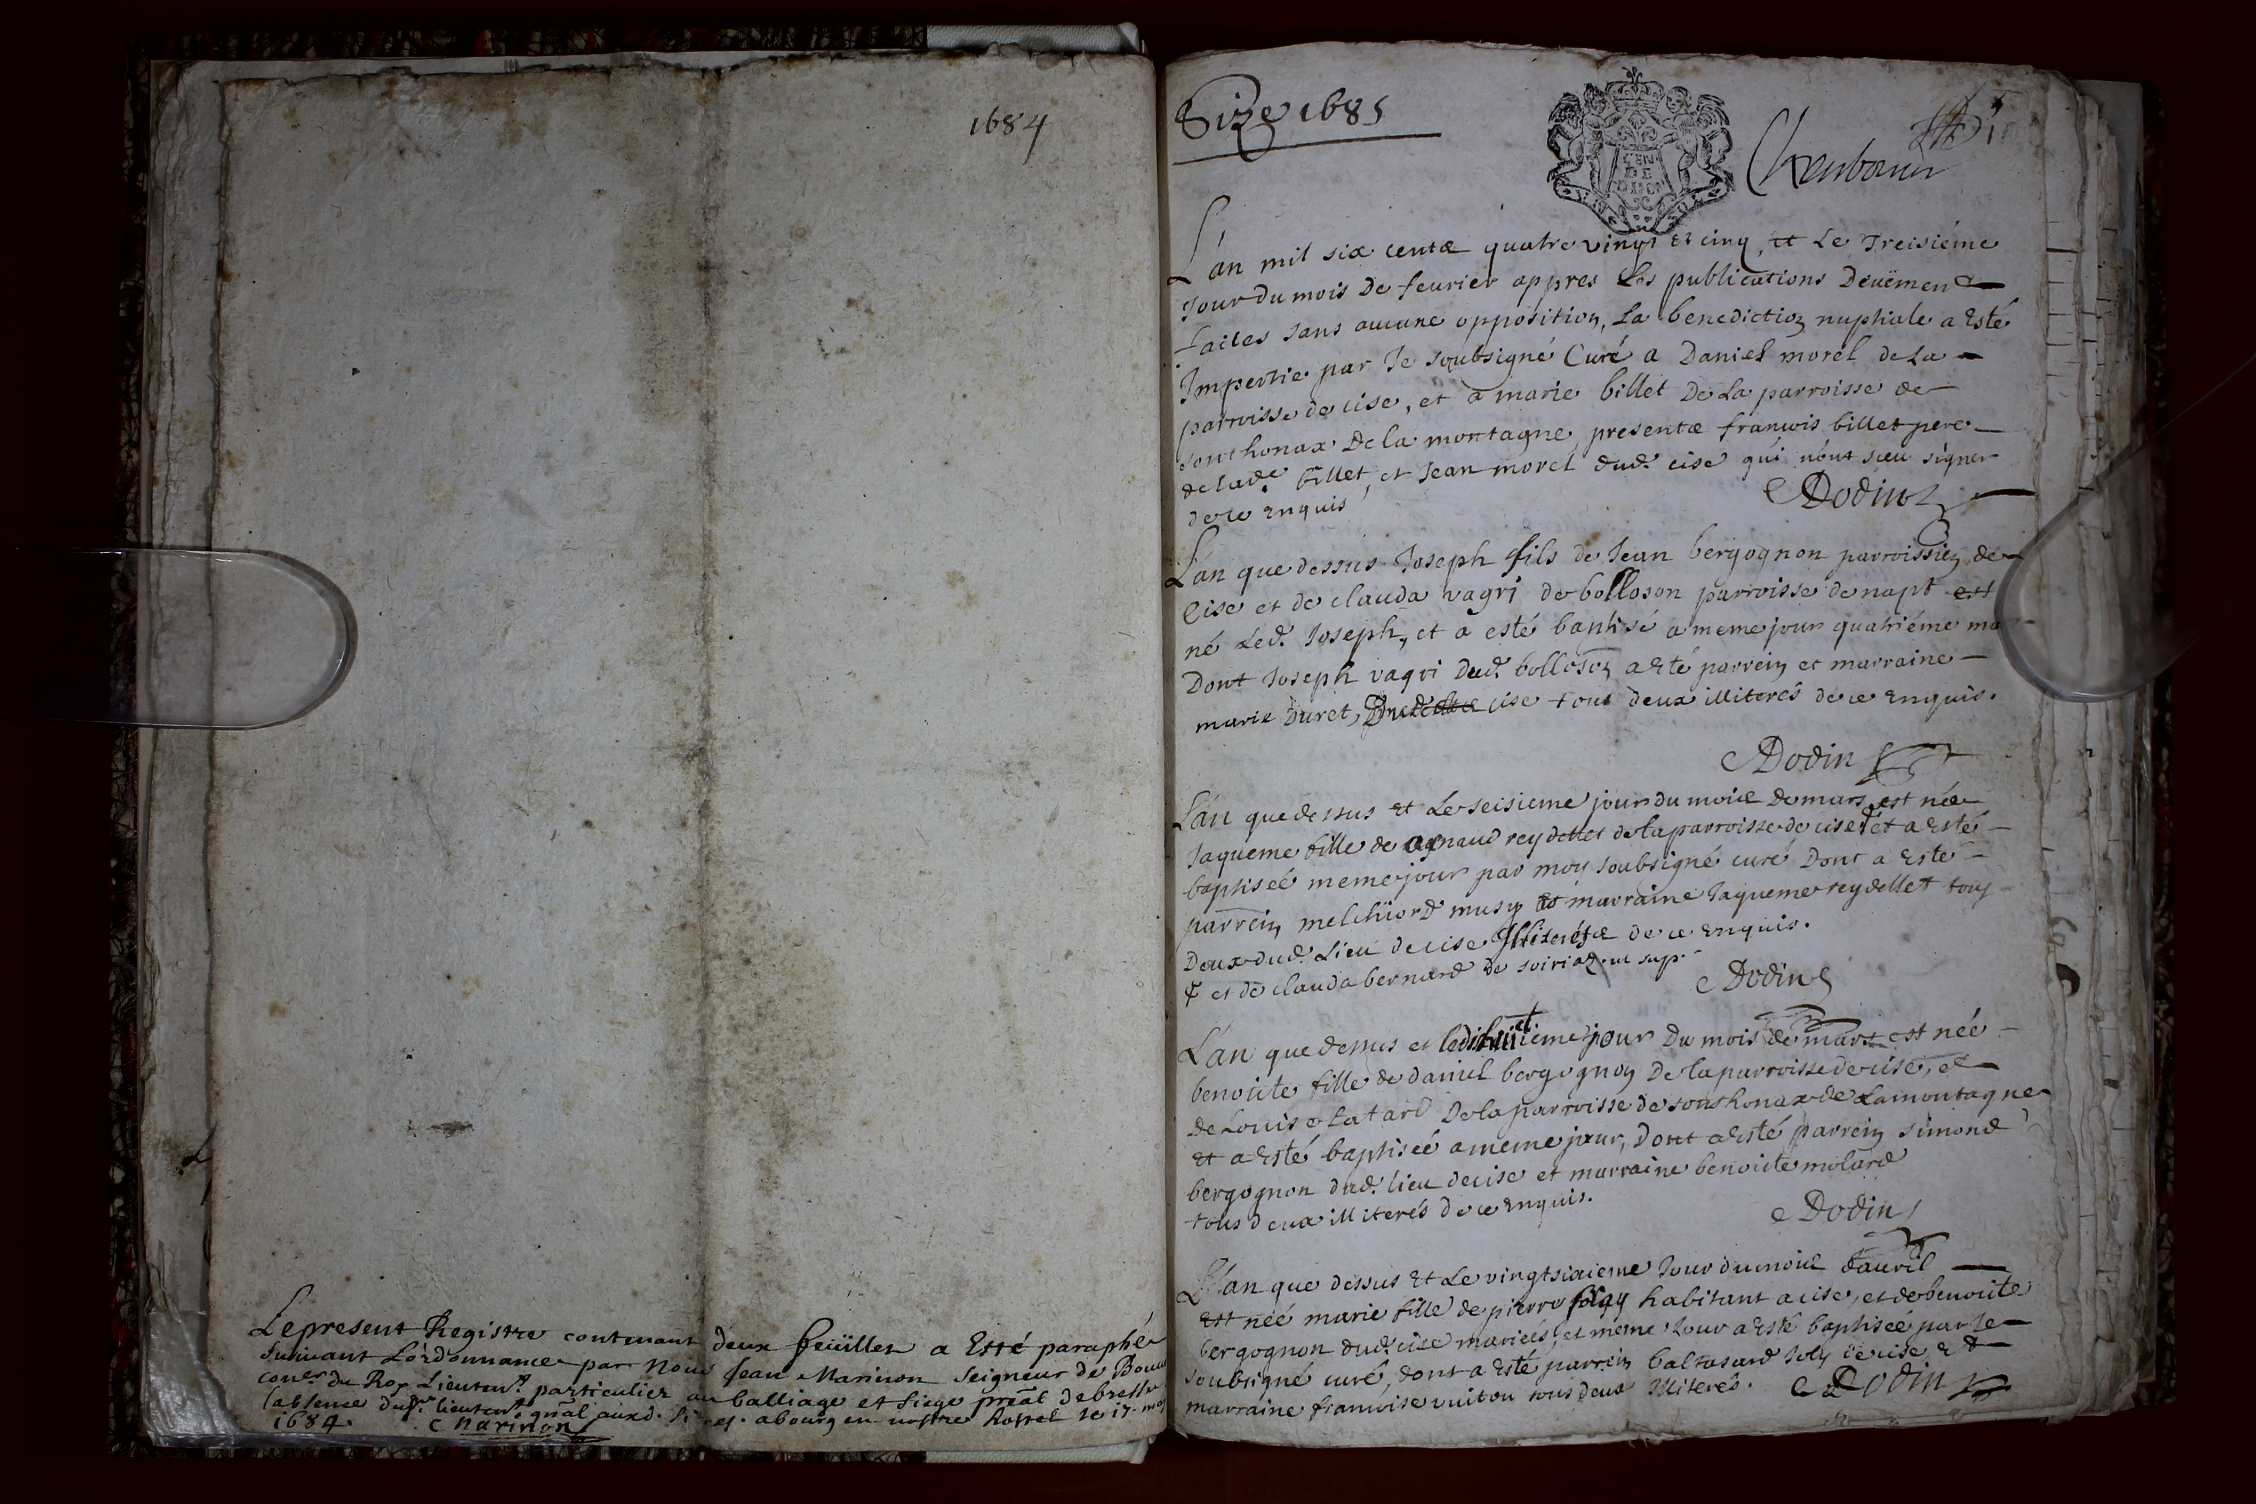 1684
Le present Registre contenant deux feüillets a Esté paraphé
suivant Lordonnance par Nous Jean Marinon Seigneur de
conr. du Roy Lieutent. particulier au balliage et siege preal de bresse
labsence du lieutent gnal aud. abourg en nostre hostel le 17
1684. Marinon
Size 1685
GEN
DE
DIJON
L'an mil six cents quatre vingt et cinq, et Le Treisiéme
Jour du mois de feurier appres les publications Deüement
faites sans aucune opposition, La benediction nuptiale a Esté
Impertie par Je soubsigné Curé a Daniel morel de La
parroisse de cise, et a marie billet De La parroisse de
sonthonax de la montagne, presents francois billet pere
de lade billet, et Jean morel dud. cise qui n'ont sceu signer
de ce Enquis
Dodin
L'an que dessus Joseph fils de Jean bergognon parroissien de
Cise et de clauda vagri de bolloson parroisse de napt est
né Led. Joseph, et a esté baptisé a meme jour quatriéme ma
Dont Joseph vagri dud. bolloson a Eté parrein et marraine
marie Duret, cise tous deux illiterés de ce Enquis.
Dodin
L'an que dessus et Le seisieme jour du mois de mars est née
Jaqueme fille de aynaud reydellet de la parroisse de cise ₵ et a Esté
baptiseé meme jour par moy soubsigné curé Dont a Esté
parrein melchiord musy et marraine Jaqueme reydellet tous
Deux dud. Lieu de cise Illiterés de ce Enquis.
₵ et de clauda bernard de soiria ut sup.
Dodin
L'an que dessus et le dixhuitieme jour Du mois de mars est née
benoite fille de daniel bergognon De la parroisse de cise, et
de Louise Latard De la parroisse de sonthonax de La montagne
et a Esté baptiseé a meme jour, Dont a Esté parrein simond
bergognon dud. lieu de cise et marraine benoicte molard
tous deux illiterés de ce Enquis.
Dodin
L'an que dessus et Le vingtsixieme Jour du mois d'auril
est neé marie fille de pierre habitant a cise, et de benoite
bergognon dud. cise mariés, et meme Jour a Esté baptiseé par Je
soubsigné curé, dont a Esté parrein baltasard Joly de cise, et
marraine francoise vuiton tous deux Illiterés. Dodin